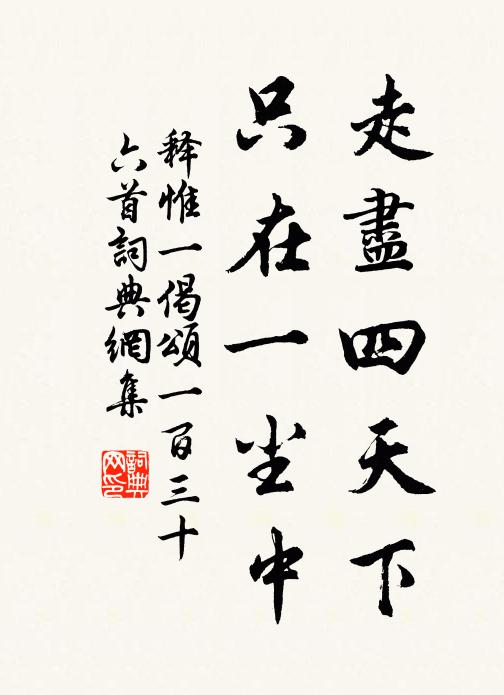 走盡四天下
只在一尘中
释惟一偈頌一百三十
六首詞典網集
詞典
网印